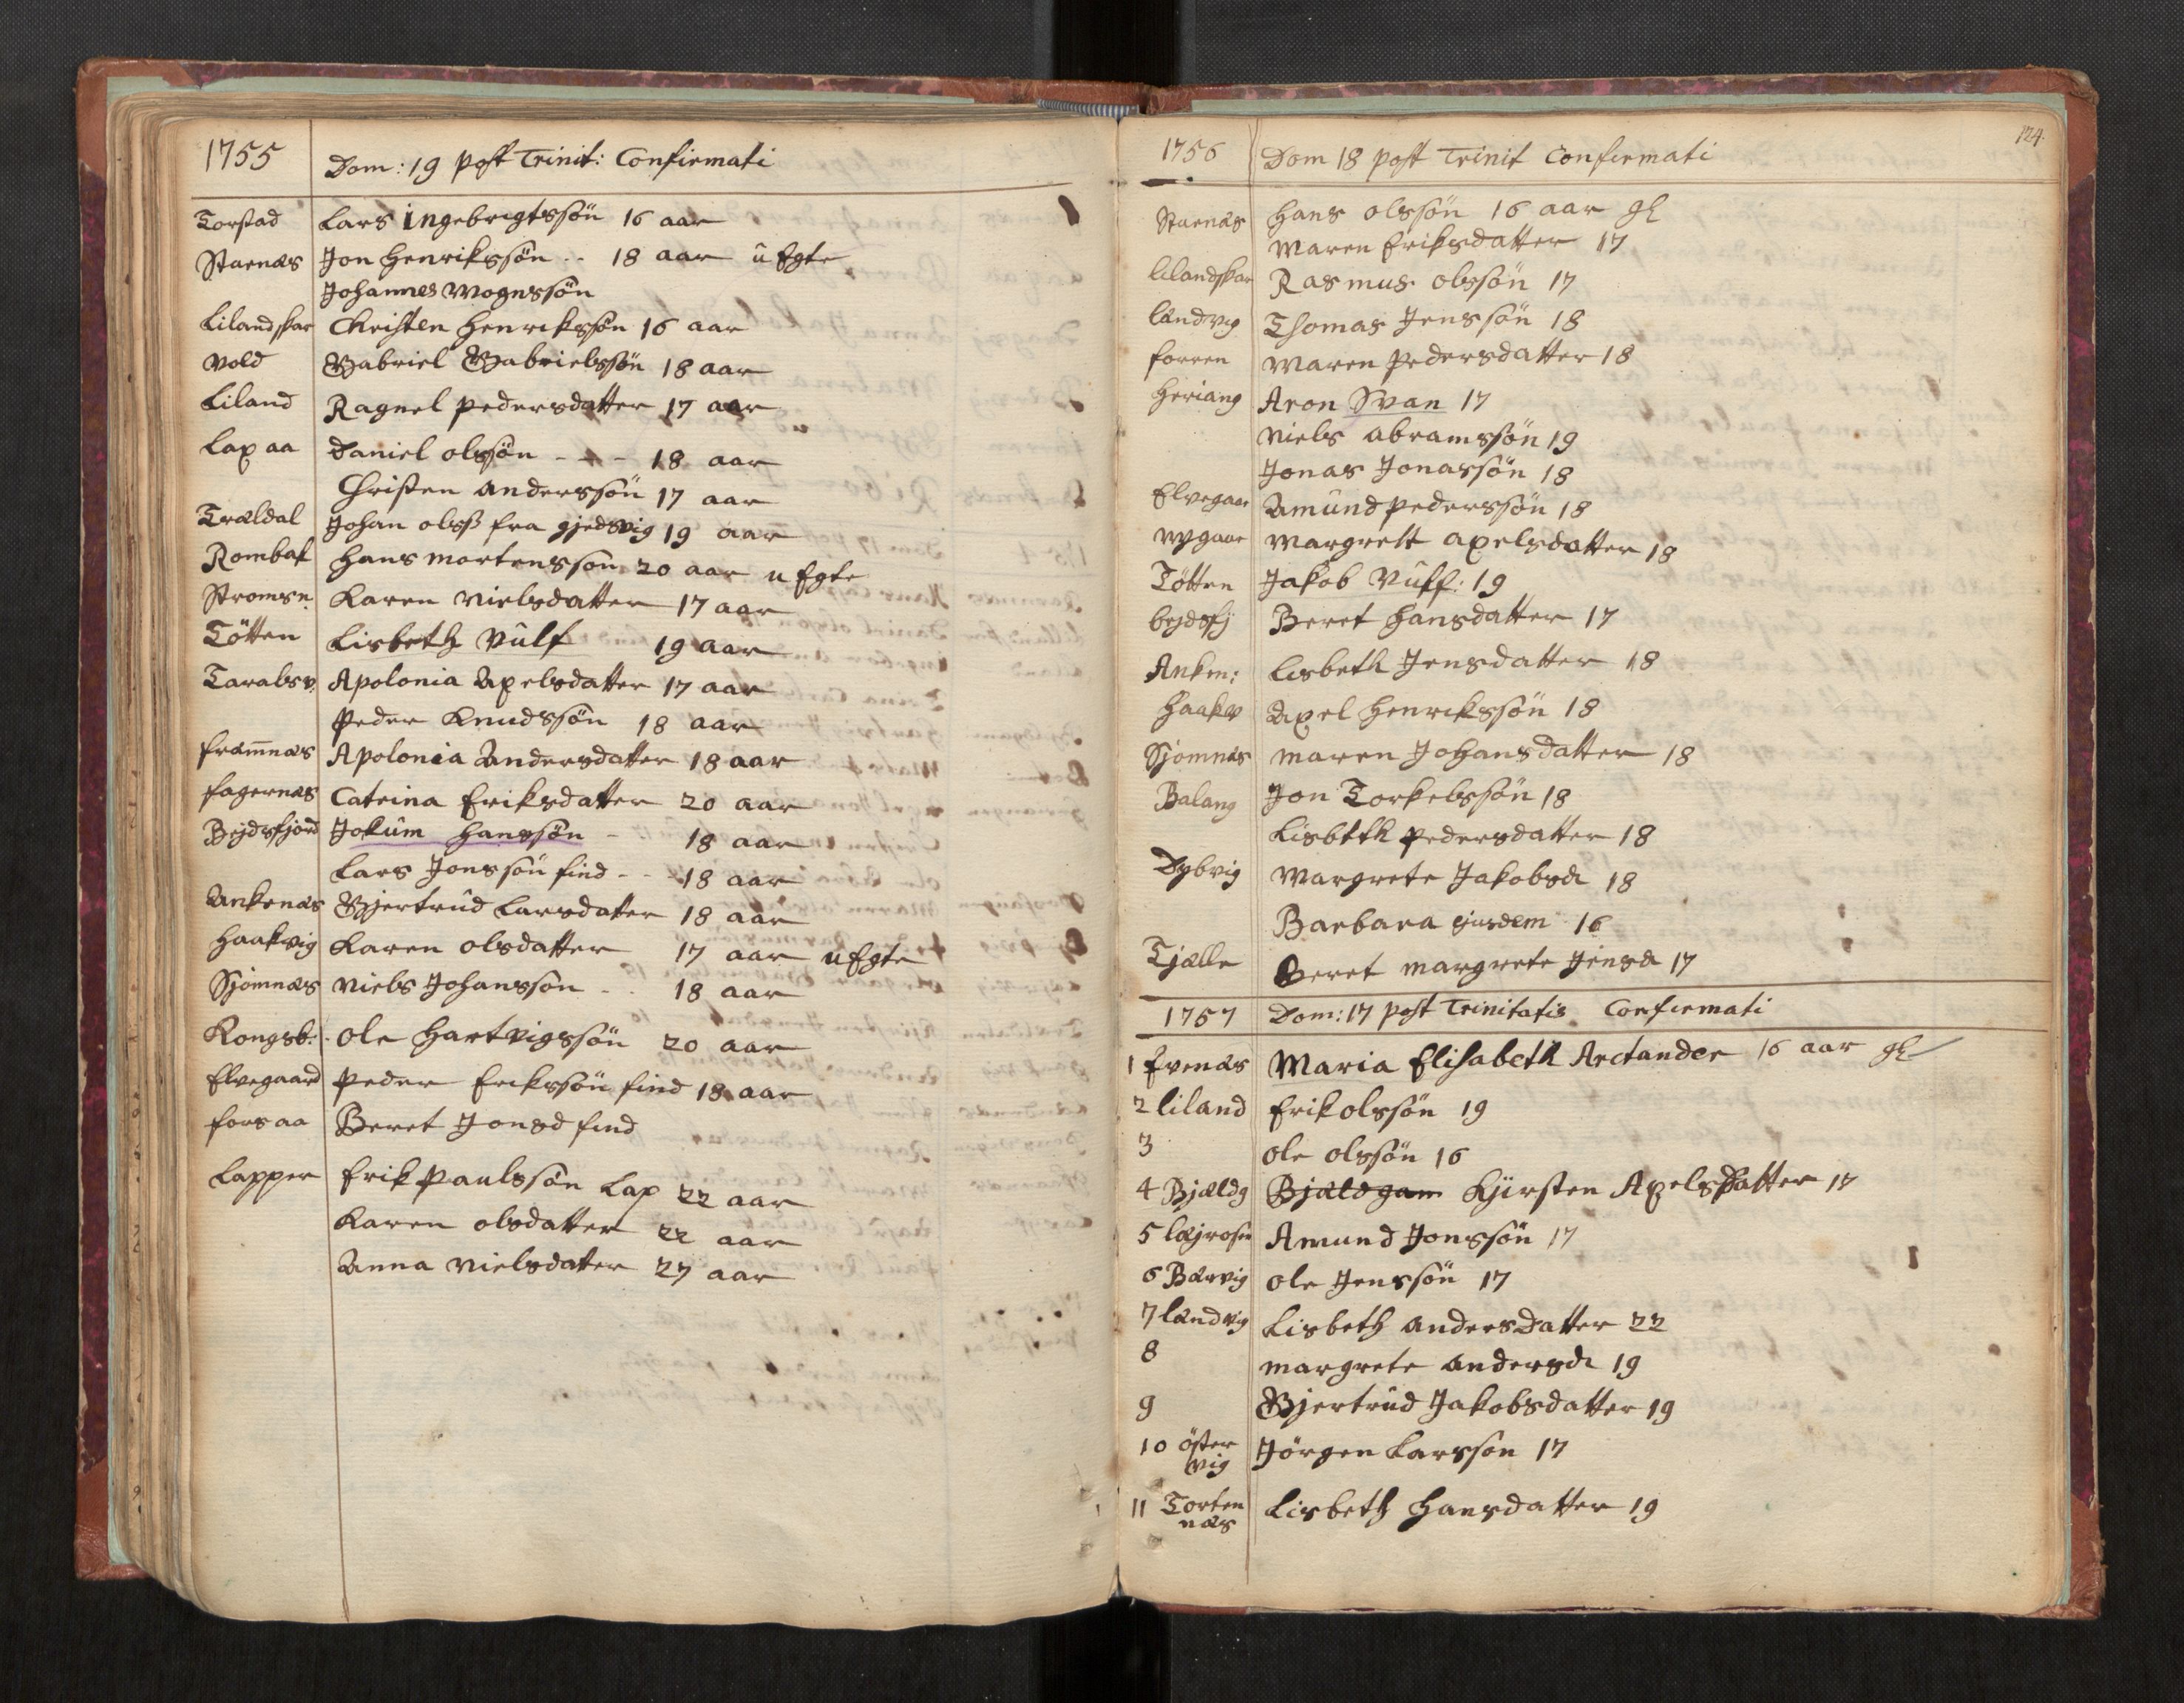 1755 Dom: 19 post Trinit: Confirmati
Torstad Lars ingebrigtssön 16 aar
Staenæs Jon Henrikssön .. 18 aar uEgte
Johannes Mognssön
Lilandskar Christen Henrikssön 16 aar
Vold Gabriel Gabrielssön 18 aar
Liland Ragnel Pedersdatter 17 aar
Laxaa Daniel olssön - - - 18 aar
Christen Anderssön 17 aar
Trældal Johan olss fra gjedsvig 19 aar
Rombak Hans Mortenssön 20 aar uEgte
Stromsn: Karen Nielsdatter 17 aar
Tötten Lisbeth Vulf 19 aar
Taralsv: Apolonia Axelsdatter 17 aar
Peder Knudssön 18 aar
framnæs Apolonia Andersdatter 18 aar
fagernæs Catrina Eriksdatter 20 aar
Bejdsfjord Jokum Hanssön - 18 aar
Lars Jonssön find - - 18 aar
Ankenæs Gjertrud Larsdatter 18 aar
Haakvig Karen olsdatter 17 aar uEgte
Sjomnæs Niels Johanssön - . 18 aar
Kongsb: Ole Hartvigssön 20 aar
Elvegaard Peder Erikssön find 18 aar
forsaa Beret Jonsd find
Lapper Erik Paulssön Lap 22 aar
Karen olsdatter 22 aar
Anna Nielsdatter 27 aar
124.
1756 Dom 18 post Trinit Confirmati
Staenæs Hans olssön 16 aar gl
Maren Eriksdatter 17
lilandskar Rasmus olssön 17
lændvig Thomas Jenssön 18
forren Maren Pedersdatter 18
Heriang Aron Svan 17
Niels Abramssön 19
Jonas Jonassön 18
Elvegaar Amund Pederssön 18
nygaar Margrett Axelsdatter 18
Tötten Jakob Vulf: 19
bejdsfj Beret Hansdatter 17
Ankn: Lisbeth Jensdatter 18
Haakv Axel Henrikssön 18
Sjomnæs Maren Johansdatter 18
Balang Jon Torkelssön 18
Lisbeth Pedersdatter 18
Dybvig Margrete Jakobsd 18
Barbara ejusdem 16
Tjælle Beret Margrete Jensd 17
1757 Dom: 17 post Trinitatis Confirmati
1 Evenæs Maria Elisabeth Arctander 16 aar gl
2 liland Erik olssön 19
3 ole olssön 16
4 Bjældg Bjældgam Kjirsten Axelsdatter 17
5 Amund Jonssön 17
6 Bærvig Ole Jenssön 17
7 lændvig Lisbeth Andersdatter 22
8 Margrete Andersd 19
9 Gjertrud Jakobsdatter 19
10 öster Jörgen Larssön 17
vig
11 Torten Lisbeth Hansdatter 19
næs